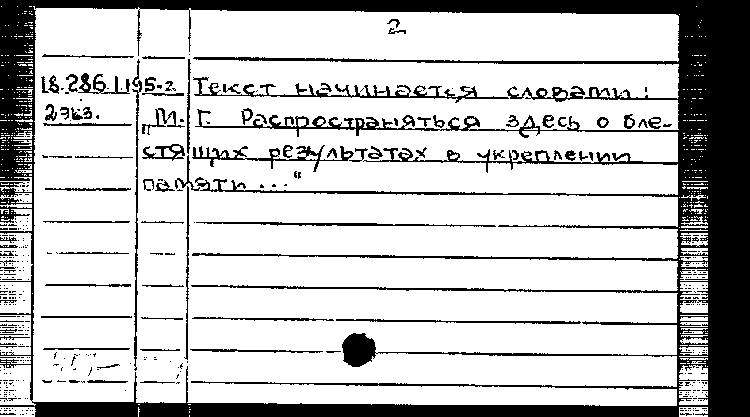 2
18.286.195-2 Текст начинается словами:
2 экз. „М.Г. Распространяться здесь о бле-
стящих результатах в укреплении
памяти..."